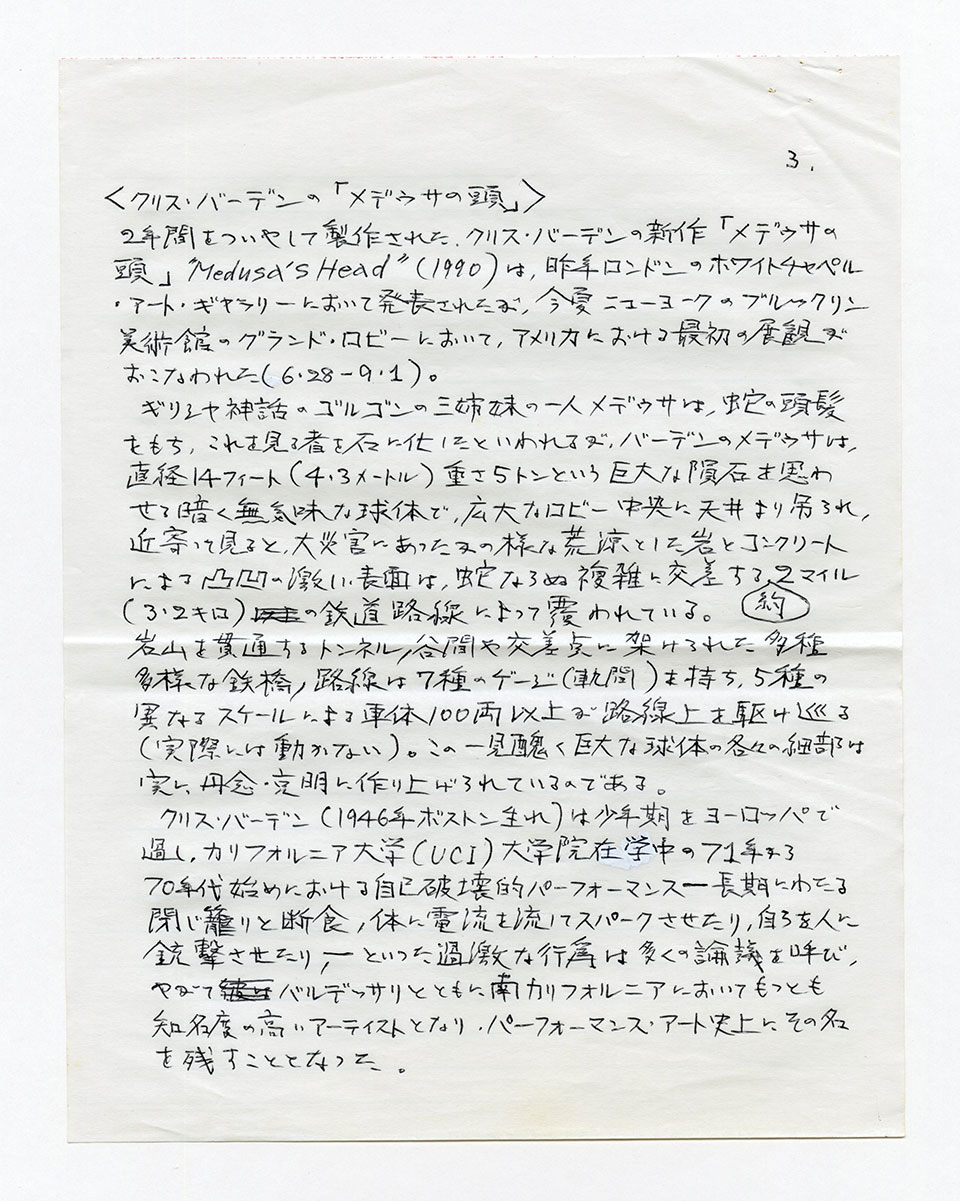 3.
〈クリス・バーデンの「メデウサの頭」〉
2年間をついやして製作された、クリス・バーデンの新作「メデウサの
頭」"Medusa's Head"(1990)は,昨年ロンドンのホワイトチャペル
・アート・ギャラリーにおいて発表されたが,今夏ニューヨークのブルックリン
美術館のグランド・ロビーにおいて,アメリカにおける最初の展観が
おこなわれた(6・28-9・1)。
ギリシャ神話のゴルゴンの三姉妹の一人メデウサは,蛇の頭髪
をもち,これを見る者を石に化したといわれるが,バーデンのメデウサは,
直径14フィート(4・3メートル)重さ5トンという巨大な隕石を思わ
せる暗く無気味な球体で,広大なロビー中央に天井より吊るれ,
近寄って見ると,大災害にあったまの様な荒涼とした岩とコンクリート
による凸凹の激しい表面は,蛇ならぬ複雑に交差する2マイル
約
(3・2キロ)の鉄道路線によって覆われている。
岩山を貫通するトンネル,谷間や交差点に架けられた多種
多様な鉄橋,路線は7種のゲージ(軌間)を持ち,5種の
異なるスケールによる車体100両以上が路線上を駆け巡る
(実際には動かない)。この一見醜く巨大な球体の各々の細部は
実に丹念・克明に作り上げられているのである。
クリス・バーデン(1946年ボストン生れ)は少年期をヨーロッパで
過し,カリフォルニア大学(UCI)大学院在学中の71年まる
70年代始めにおける自己破壊的パーフォーマンスー長期にわたる
閉じ籠りと断食,体に電流を流してスパークさせたり,自らを人に
銃撃させたり,ーといった過激な行為は多くの論議を呼び,
やがてバルデッサリとともに南カリフォルニアにおいてもっとも
知名度の高いアーティストとなり,パーフォーマンス・アート史上にその名
を残すこととなった。